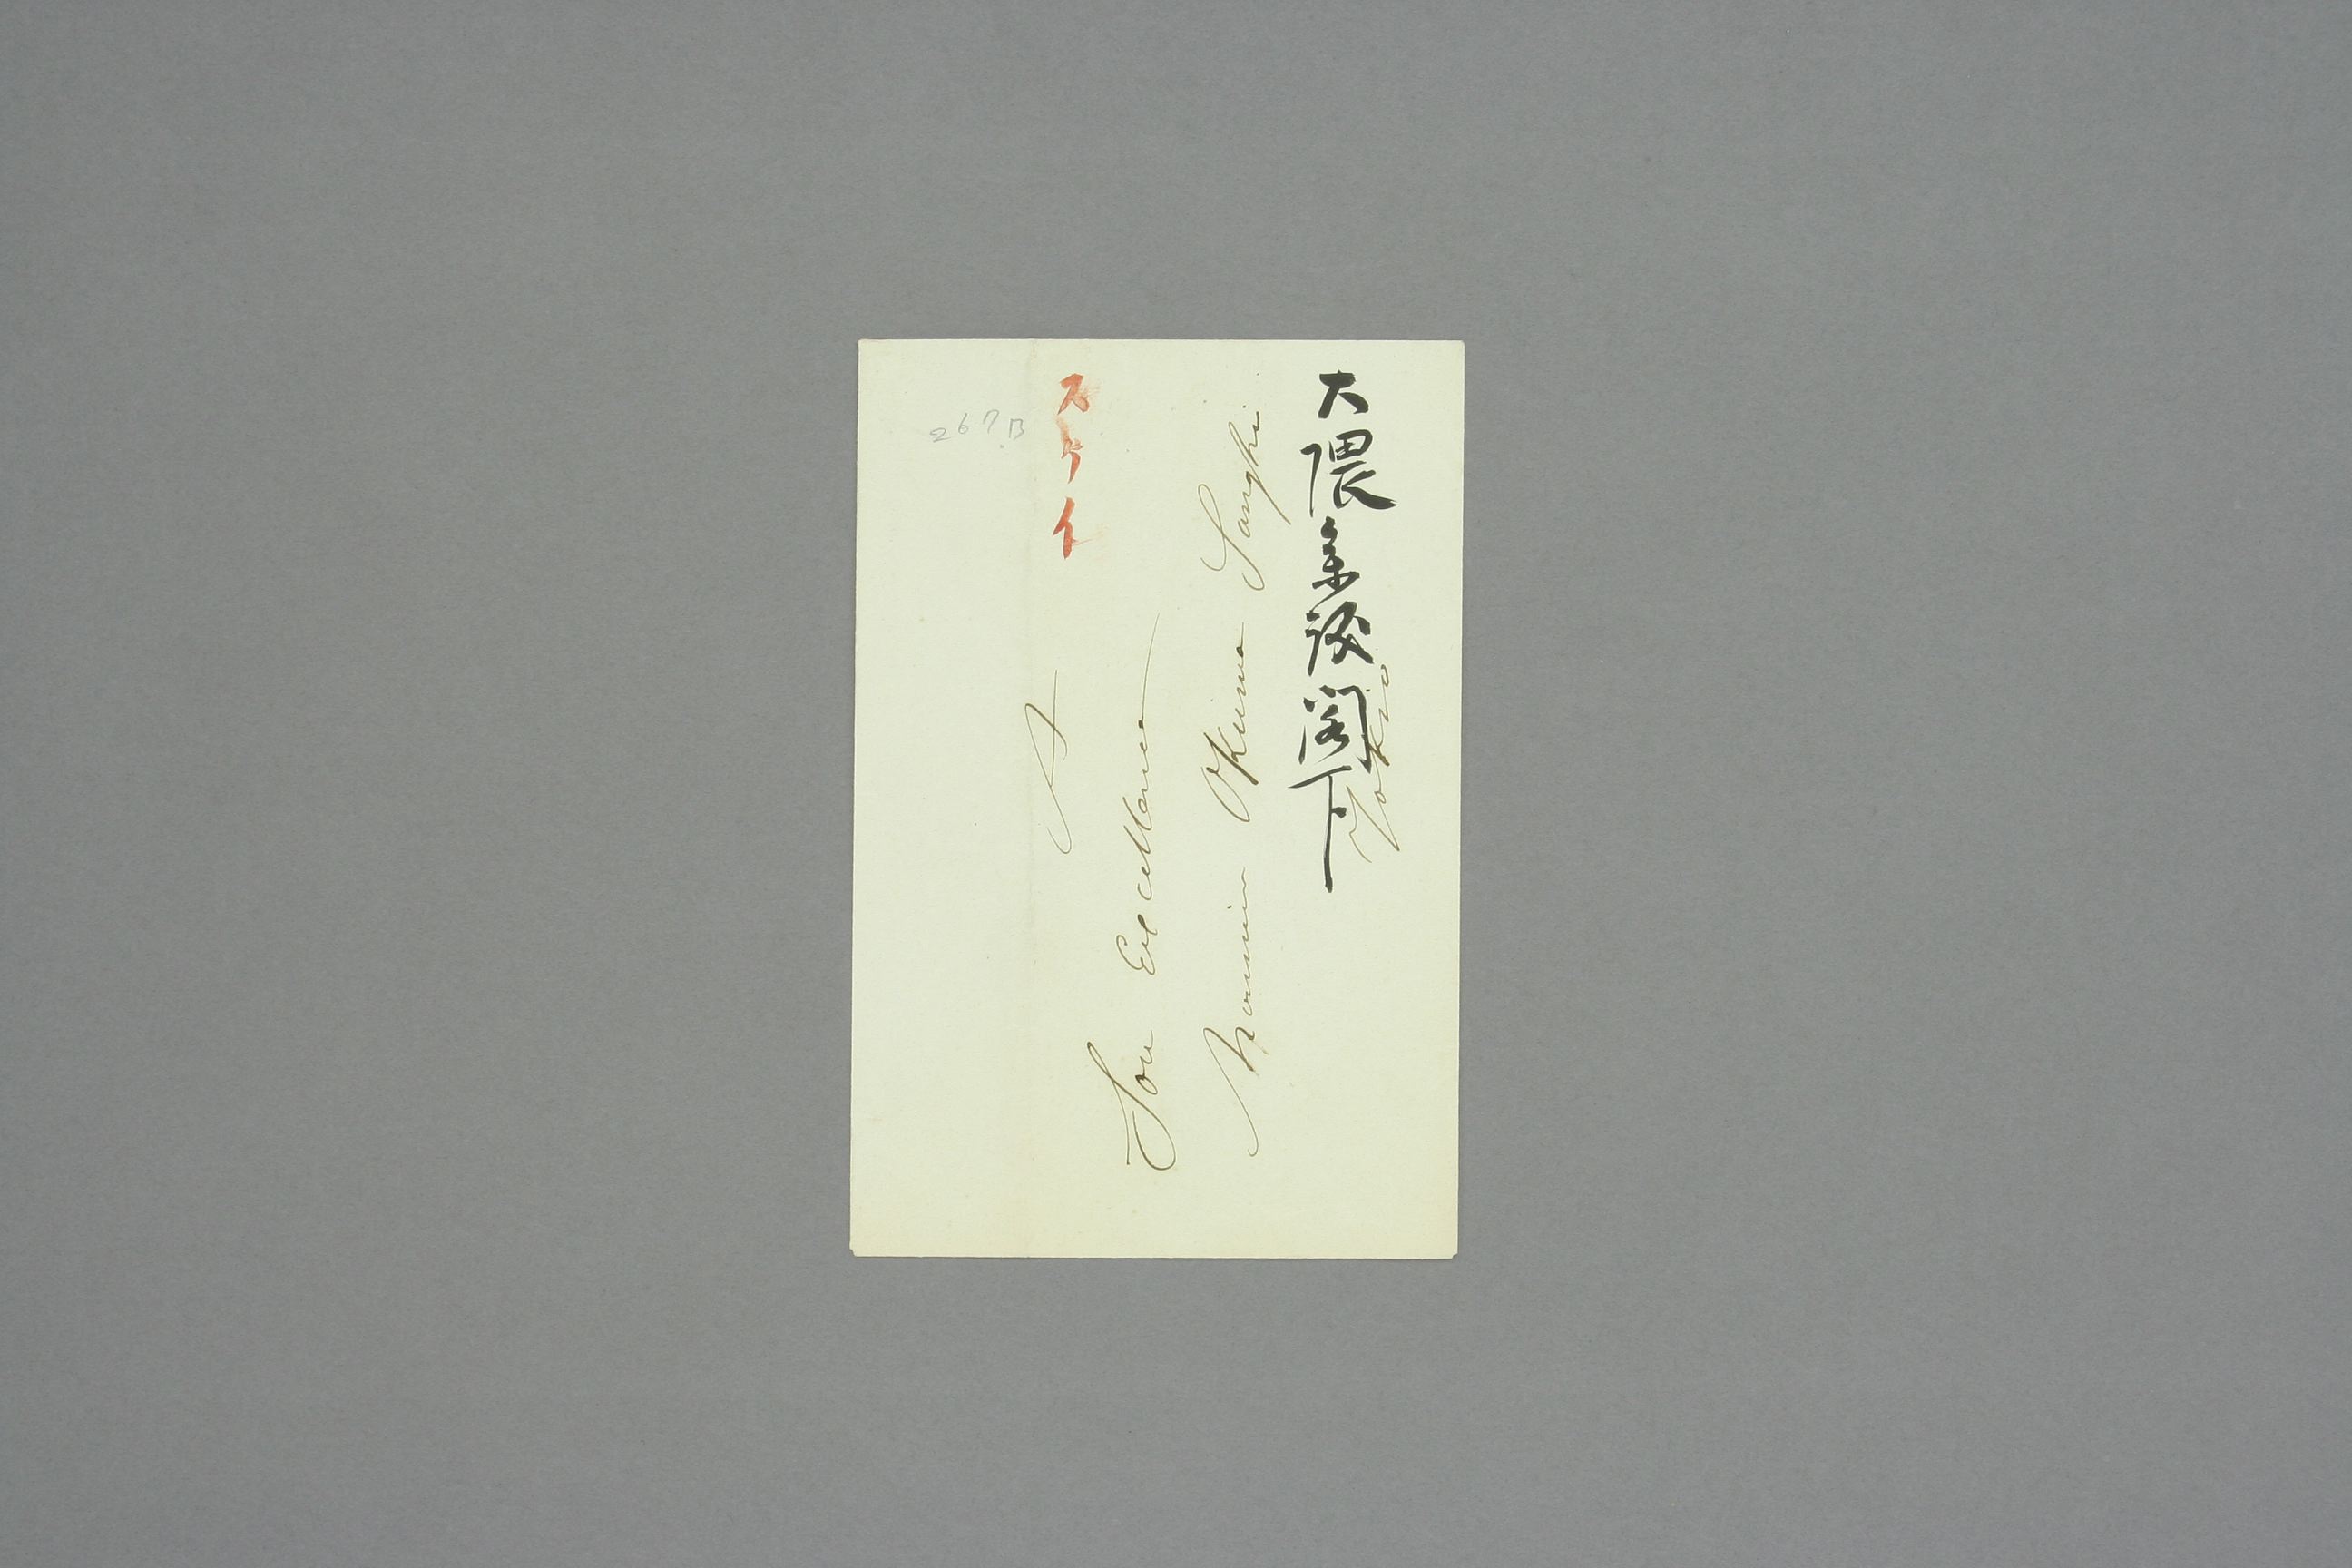 大隈参議閣下
スケイ
267B
A
Son Excellence
Monsieur Okuma Sanghi
Tokio